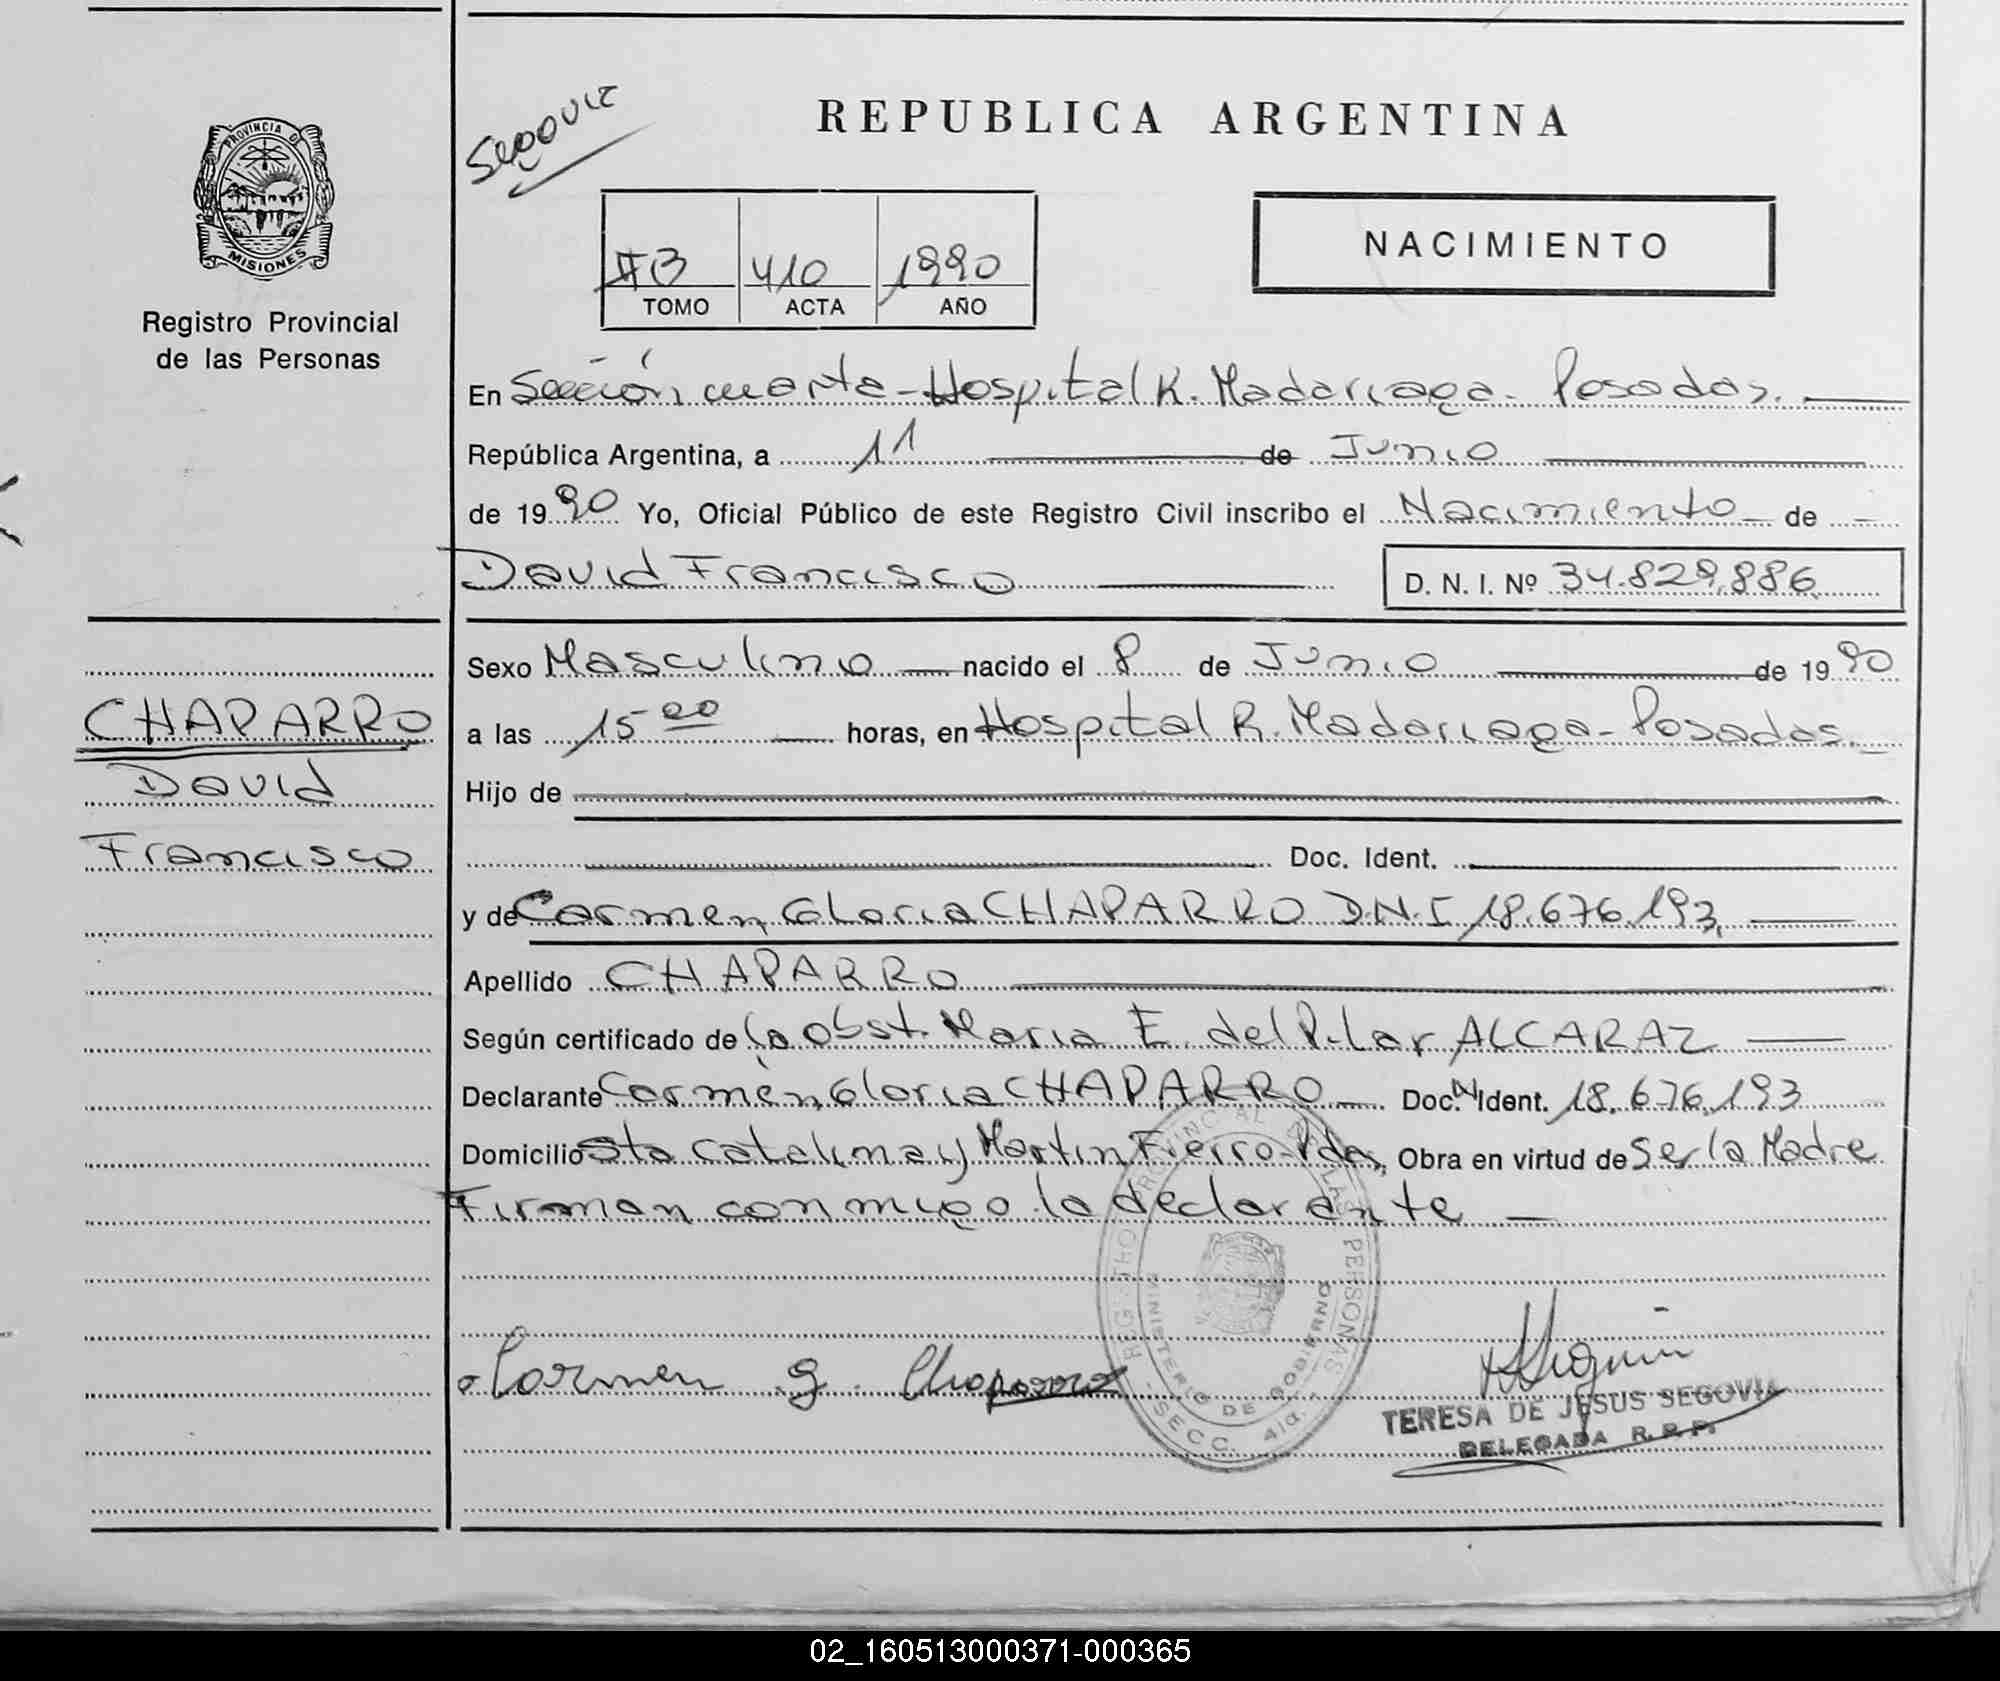 REPUBLICA ARGENTINA
PROVINCIA DE
MISIONES
Registro Provincial
de las Personas
TOMO 410 ACTA 1990 AÑO
NACIMIENTO
En Sección cuarta - Hospital R. Madariaga - Posadas.
República Argentina, a 11 de Junio
de 1990 Yo, Oficial Público de este Registro Civil inscribo el Nacimiento de
David Francisco
D. N. I. Nº 34.829.886
CHAPARRO
David
Francisco
Sexo Masculino nacido el 8 de Junio de 1990
a las 15 00 horas, en Hospital R. Madariaga - Posadas.
Hijo de
Doc. Ident.
y de Carmen Gloria CHAPARRO D.N.I 18.676.193
Apellido CHAPARRO
Según certificado de la obst. Maria E. del Pilar ALCARAZ
Declarante Carmen Gloria CHAPARRO Doc. Ident. 18.676.193
Domicilio Sta Catalina y Martin Fierro - Pdas, Obra en virtud de Ser la Madre
Firman conmigo la declarante
REGISTRO PROVINCIAL DE LAS PERSONAS
MINISTERIO DE GOBIERNO
SECC. 4ta.
Carmen g. Chaparro
TERESA DE JESUS SEGOVIA
DELEGADA R. P. P.
02_160513000371-000365